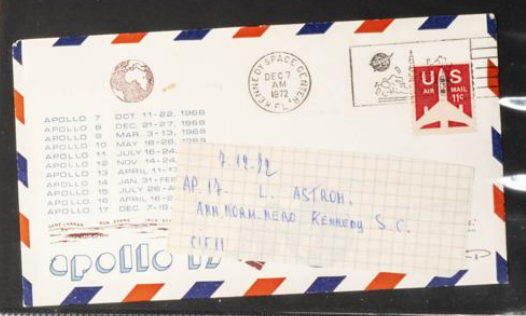 KENNEDY SPACE CENTER
DEC 7
AM
1972
FL
US
AIR MAIL
11c
APOLLO 7 OCT. 11-22, 1968
APOLLO 8 DEC. 21-27, 1968
APOLLO 9 MAR. 3-13, 1969
APOLLO 10 MAY 18-26, 1969
APOLLO 11 JULY 16-24,
APOLLO 12 NOV 14-24,
APOLLO 13 APRIL 11-1
APOLLO 14 JAN. 31-FEB
APOLLO 15 JULY 26-A
APOLLO 16 APRIL 16-2
APOLLO 17 DEC. 7-19,
apollo 17
7.12.72
AP. 17. L. ASTROM.
KENNEDY S. C.